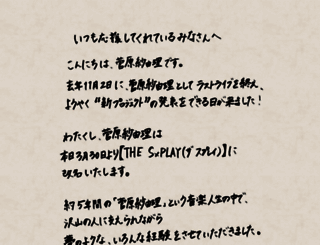 いつも応援してくれているみなさんへ
こんにちは、菅原紗由理です。
去年11月2日に、菅原紗由理としてラストライブを終え、
ようやく"新プロジェクト"の発表をできる日が来ました！
わたくし、菅原紗由理は
本日3月30日より【THE SxPLAY(ザ スプレイ)】に
改名いたします。
約5年間の「菅原紗由理」という音楽人生の中で、
沢山の人に支えられながら
夢のような、いろんな経験をさせていただきました。